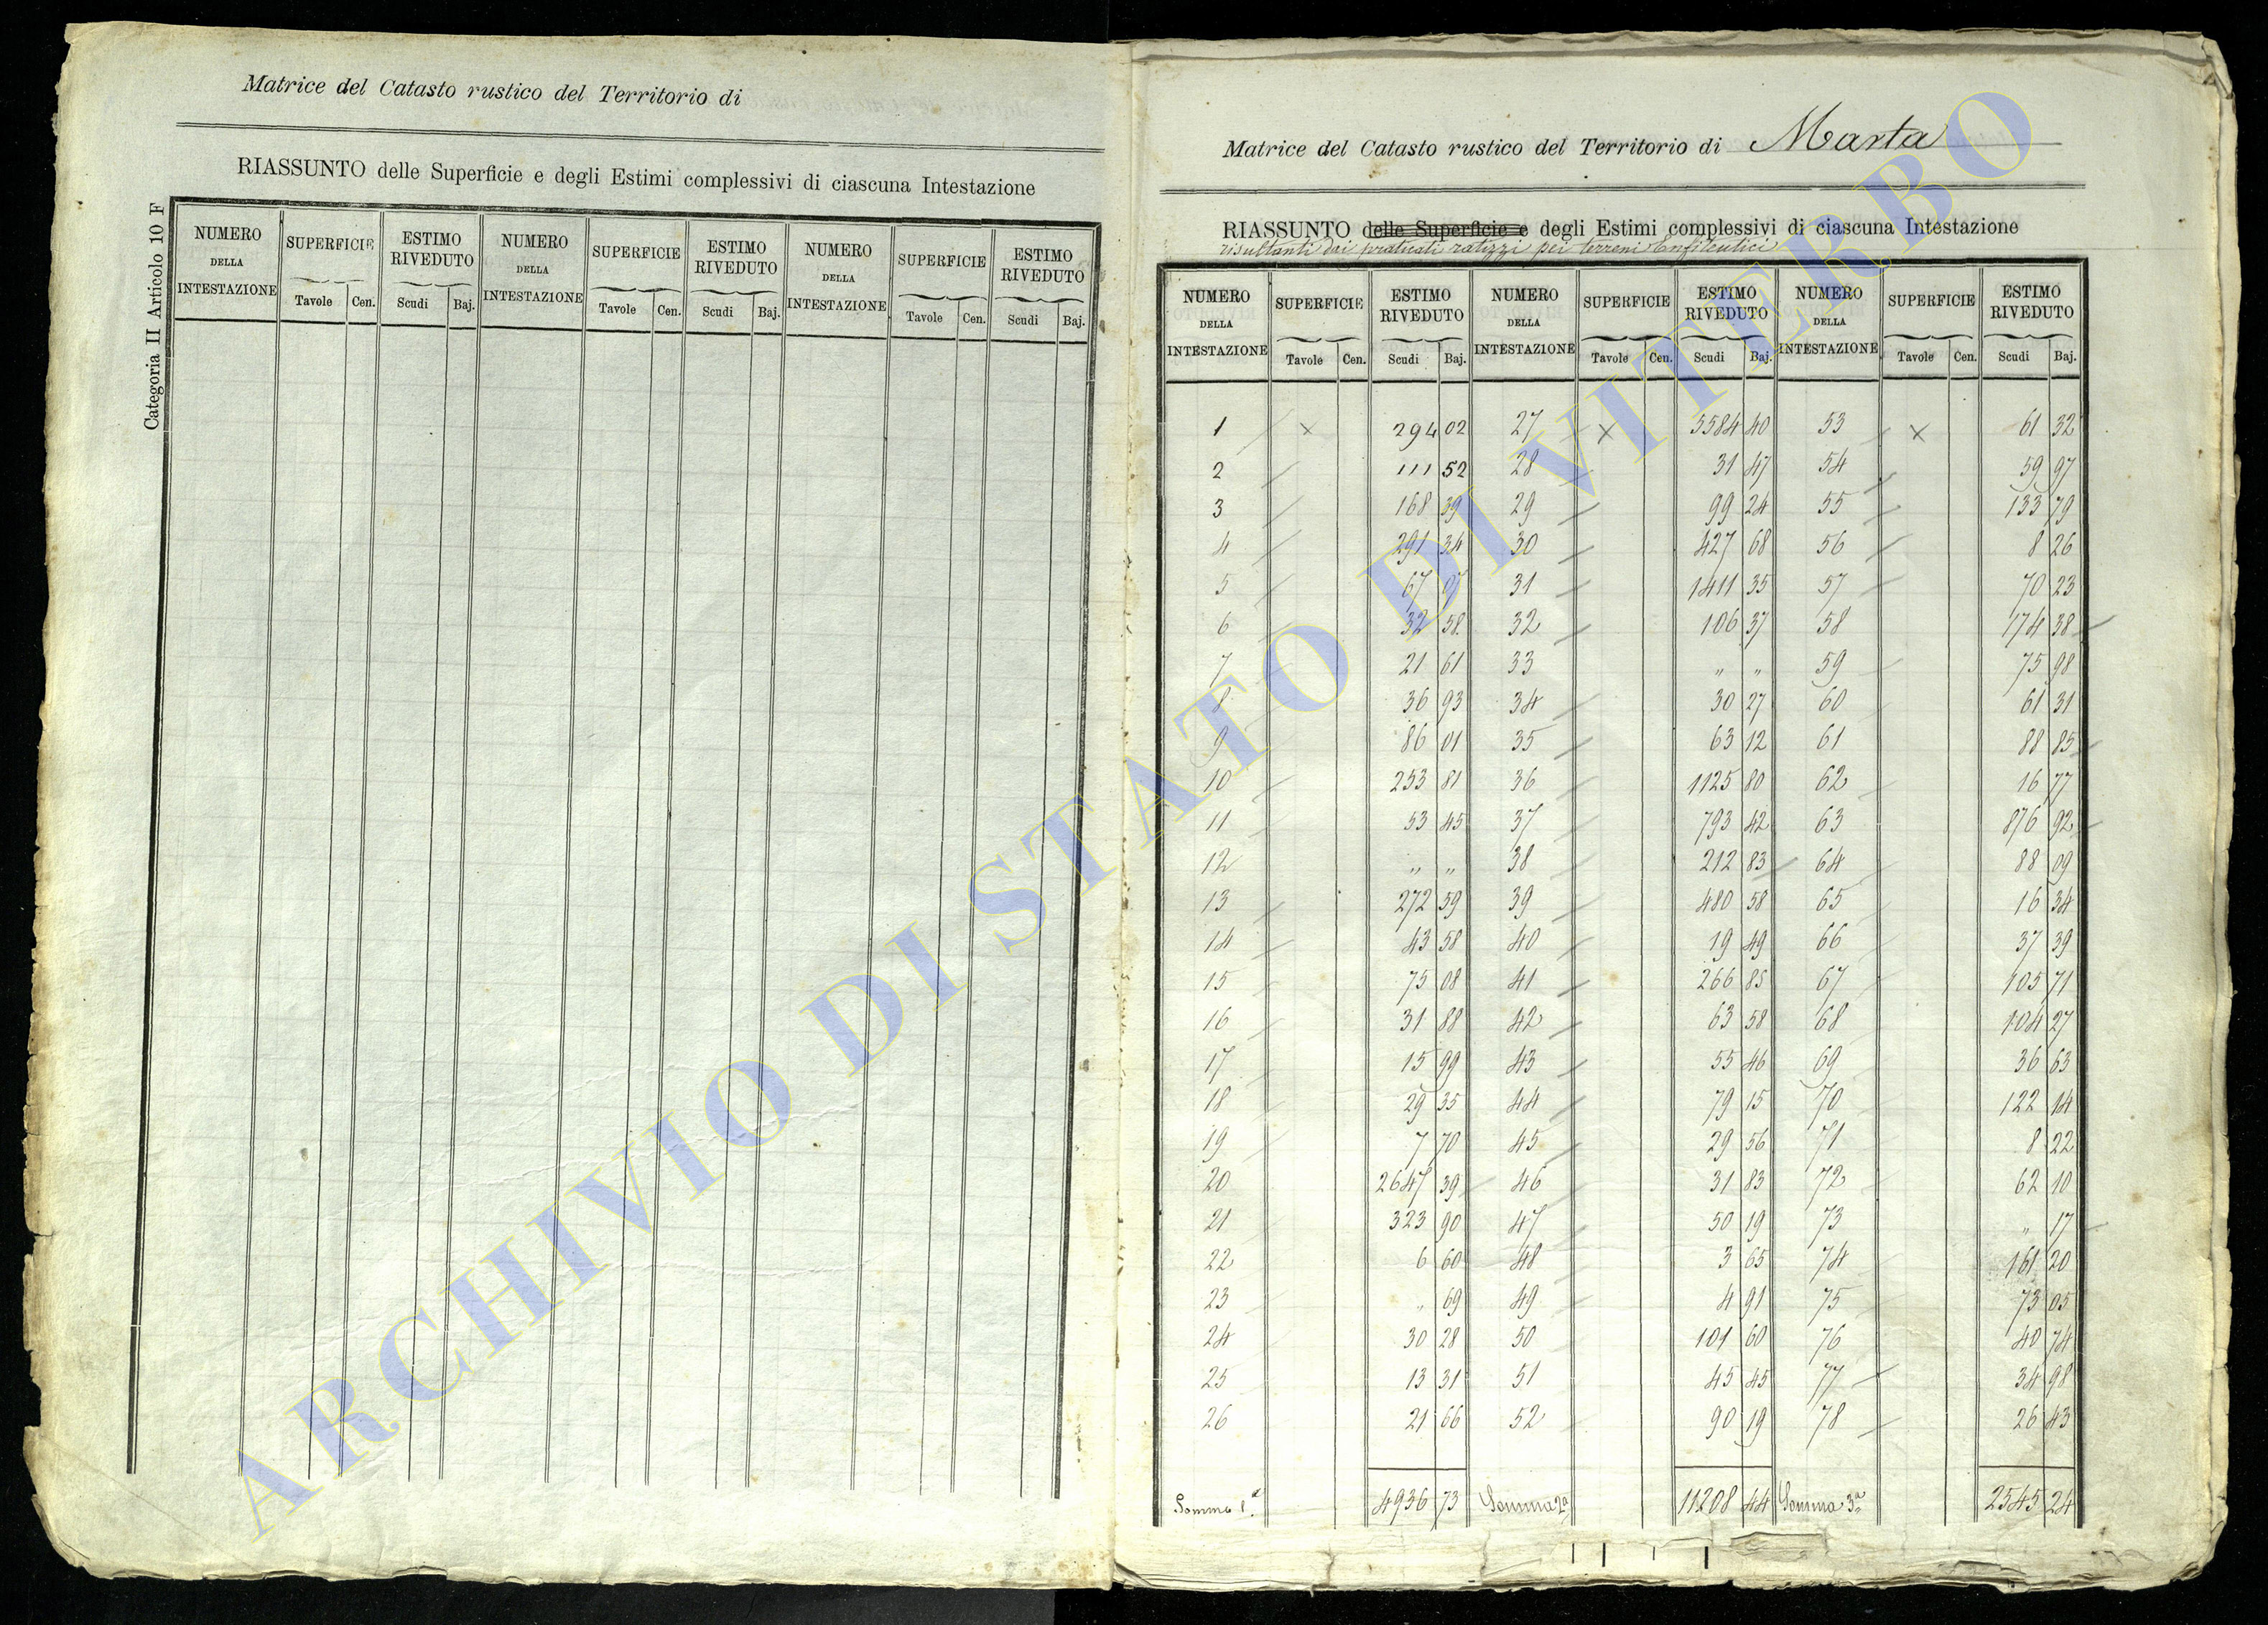 Matrice del Catasto rustico del Territorio di
RIASSUNTO delle Superficie e degli Estimi complessivi di ciascuna Intestazione
Categoria II Articolo 10 F
NUMERO DELLA INTESTAZIONE SUPERFICIE ESTIMO RIVEDUTO NUMERO DELLA INTESTAZIONE SUPERFICIE ESTIMO RIVEDUTO NUMERO DELLA INTESTAZIONE SUPERFICIE ESTIMO RIVEDUTO
Tavole Cen. Scudi Baj. Tavole Cen. Scudi Baj. Tavole Cen. Scudi Baj.
Matrice del Catasto rustico del Territorio di Marta
RIASSUNTO delle Superficie e degli Estimi complessivi di ciascuna Intestazione
risultanti dai praticati ratizzi pei terreni Enfiteutici
NUMERO DELLA INTESTAZIONE SUPERFICIE ESTIMO RIVEDUTO NUMERO DELLA INTESTAZIONE SUPERFICIE ESTIMO RIVEDUTO NUMERO DELLA INTESTAZIONE SUPERFICIE ESTIMO RIVEDUTO
Tavole Cen. Scudi Baj. Tavole Cen. Scudi Baj. Tavole Cen. Scudi Baj.
1 × 294 02 27 × 5584 40 53 × 61 32
2 111 52 28 31 47 54 59 97
3 168 39 29 99 24 55 133 79
4 291 34 30 427 68 56 8 26
5 67 07 31 1411 35 57 70 23
6 32 58 32 106 37 58 174 38
7 21 61 33 " " 59 75 98
8 36 93 34 30 27 60 61 31
9 86 01 35 63 12 61 88 85
10 253 81 36 1125 80 62 16 77
11 53 45 37 793 42 63 876 92
12 " " 38 212 83 64 88 09
13 272 59 39 480 58 65 16 34
14 43 58 40 19 49 66 37 39
15 75 08 41 266 85 67 105 71
16 31 88 42 63 58 68 104 27
17 15 99 43 55 46 69 36 63
18 29 35 44 79 15 70 122 14
19 7 70 45 29 56 71 8 22
20 2647 39 46 31 83 72 62 10
21 323 90 47 50 19 73 " 17
22 6 60 48 3 65 74 161 20
23 " 69 49 4 91 75 73 05
24 30 28 50 101 60 76 40 74
25 13 31 51 45 45 77 34 98
26 21 66 52 90 19 78 26 43
Somma 1ª 4936 73 Somma 2ª 11208 44 Somma 3ª 2545 24
ARCHIVIO DI STATO DI VITERBO